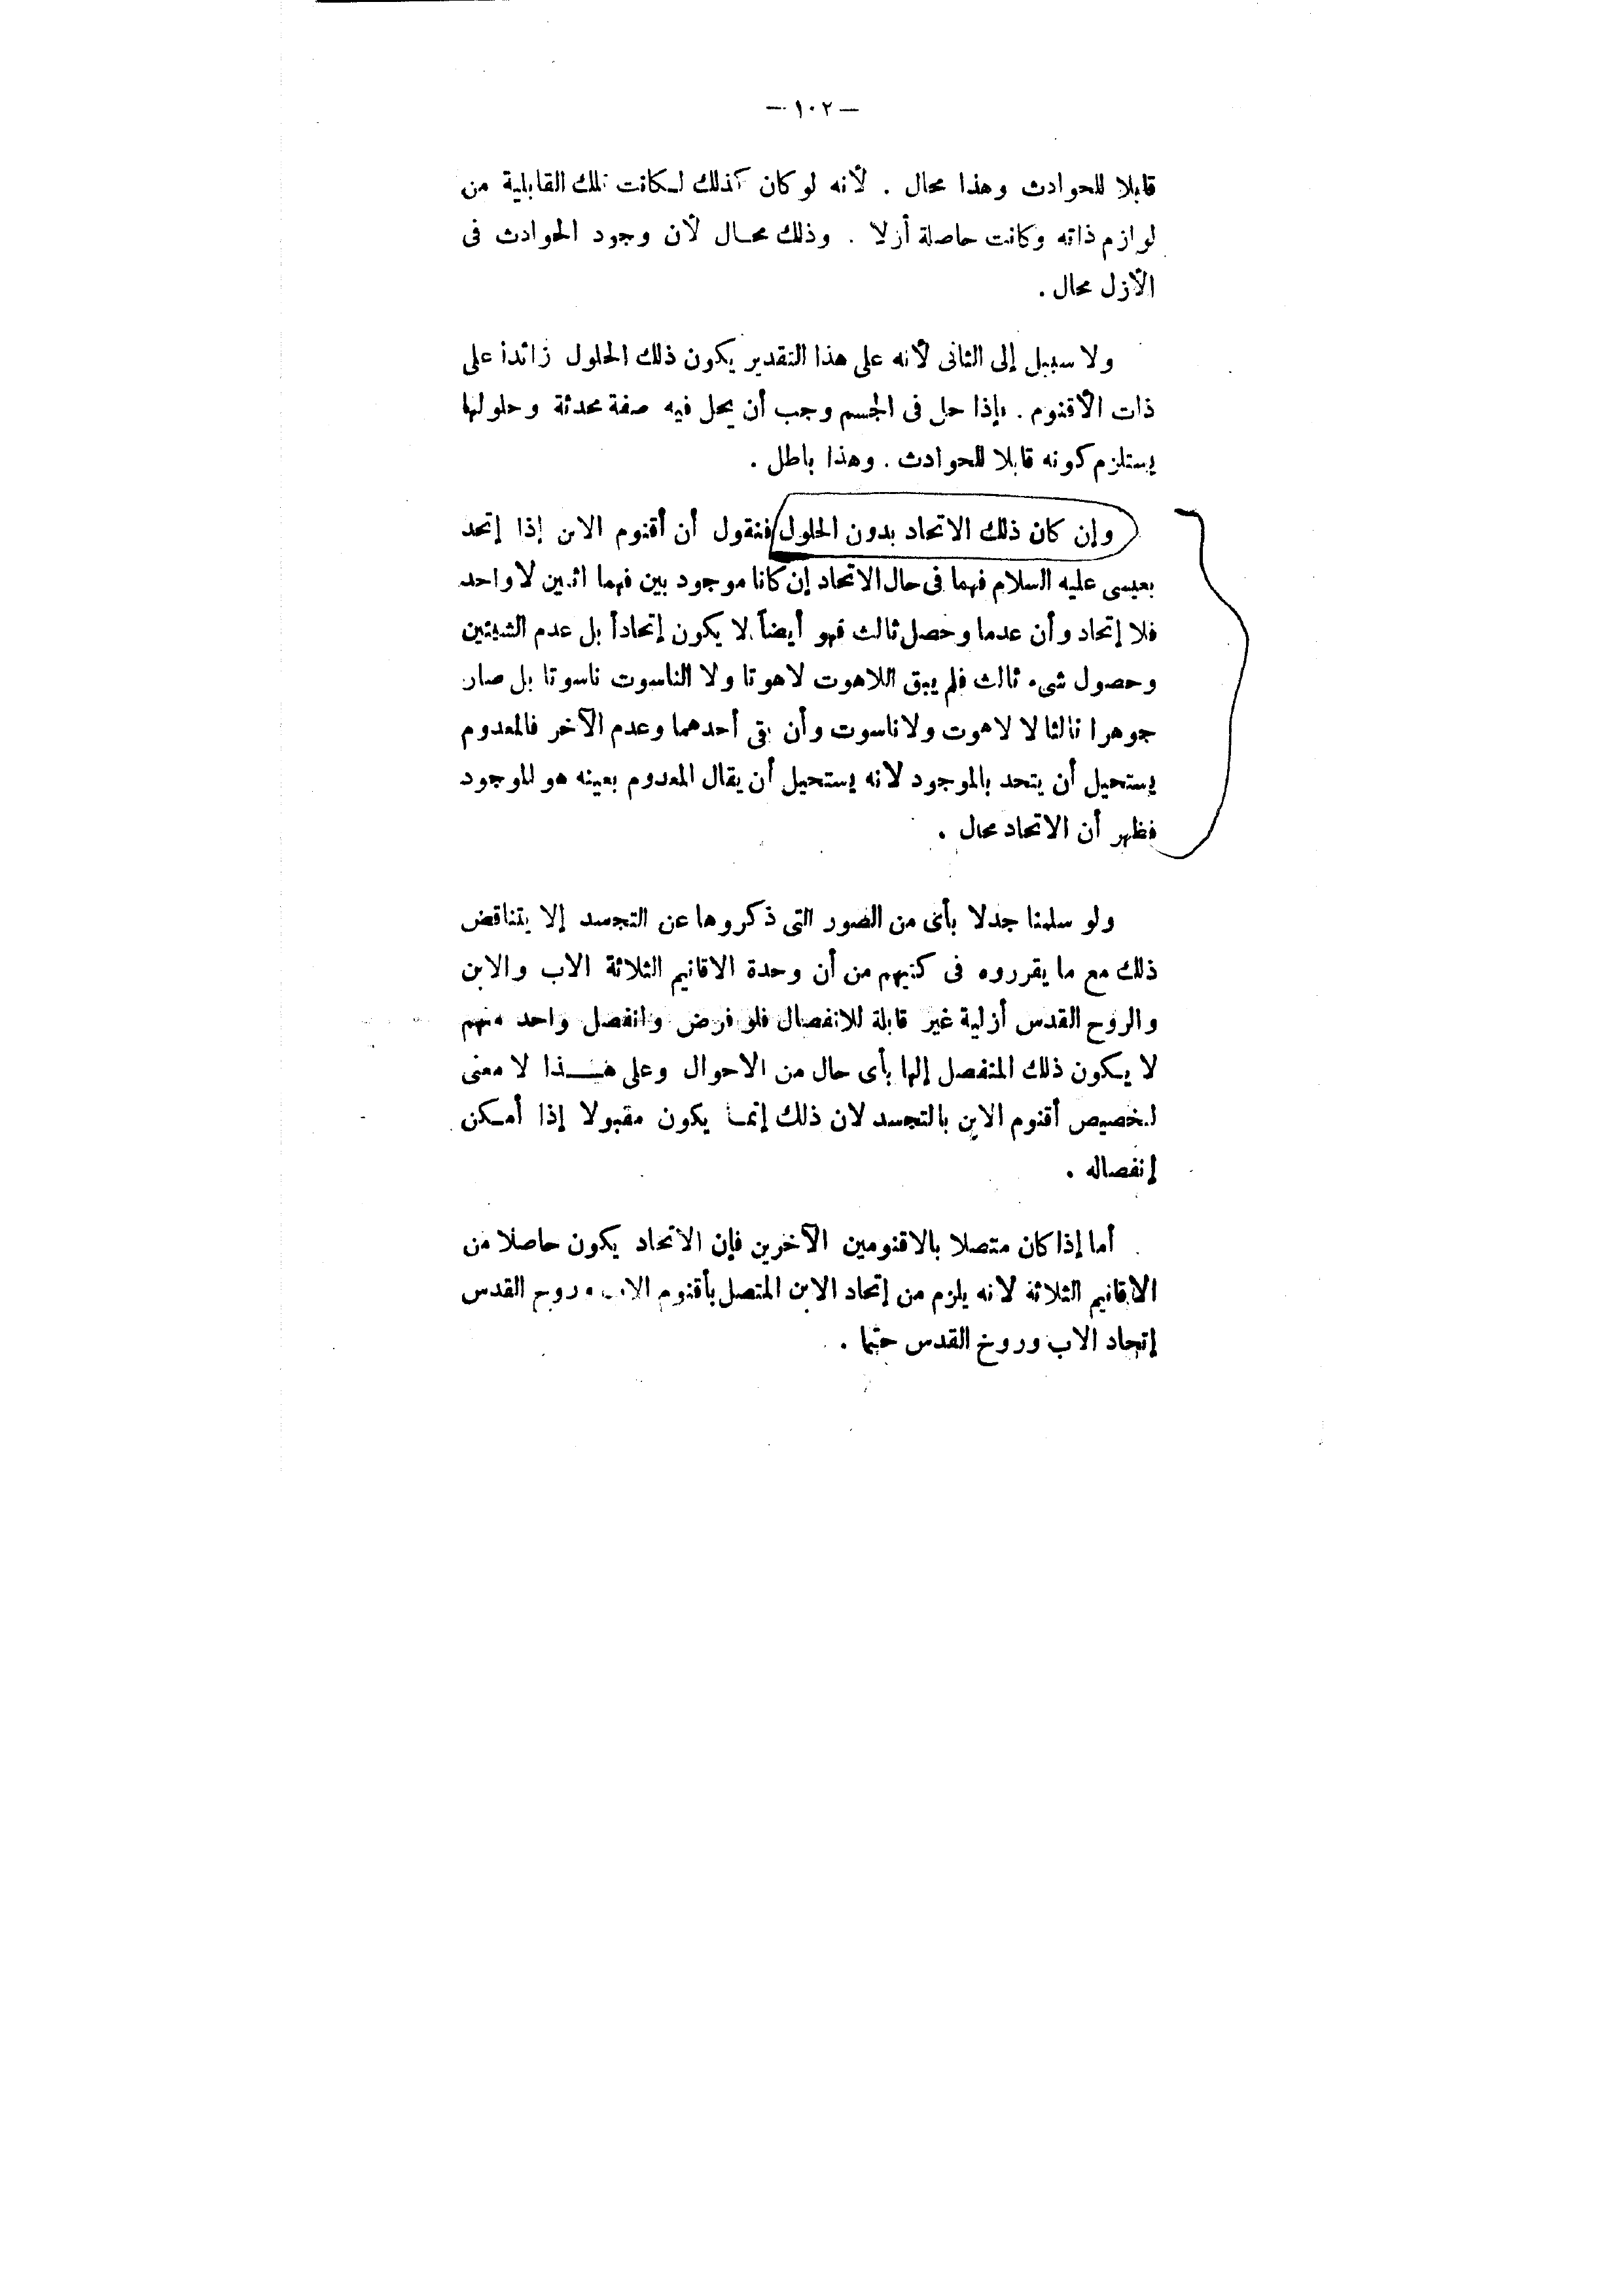 — ١٠٢ —
قابلا للحوادث وهذا محال . لأنه لو كان كذلك لكانت تلك القابلية من
لوازم ذاته وكانت حاصلة أزلا . وذلك محال لأن وجود الحوادث فى
الأزل محال .
ولا سبيل إلى الثانى لأنه على هذا التقدير يكون ذلك الحلول زائداً على
ذات الأقنوم . فإذا حل فى الجسم وجب أن يحل فيه صفة محدثة وحلولها
يستلزم كونه قابلا للحوادث . وهذا باطل .
وإن كان ذلك الاتحاد بدون الحلول فنقول أن أقنوم الابن إذا إتحد
بعيسى عليه السلام فهما فى حال الاتحاد إن كانا موجود بين فهما اثنين لا واحد
فلا إتحاد وأن عدما وحصل ثالث فهو أيضاً لا يكون إتحاداً بل عدم الشيئين
وحصول شىء ثالث فلم يبق اللاهوت لاهوتا ولا الناسوت ناسوتا بل صار
جوهرا ثالثا لا لاهوت ولا ناسوت وأن بقى أحدهما وعدم الآخر فالمعدوم
يستحيل أن يتحد بالموجود لانه يستحيل أن يقال المعدوم بعينه هو الموجود
فظهر أن الاتحاد محال .
ولو سلمنا جدلا بأى من الصور التى ذكروها عن التجسد إلا يتناقض
ذلك مع ما يقرروه فى كتبهم من أن وحدة الاقانيم الثلاثة الاب والابن
والروح القدس أزلية غير قابلة للانفصال فلو فرض وانفصل واحد منهم
لا يكون ذلك المنفصل إلها بأى حال من الاحوال وعلى هذا لا معنى
لتخصيص أقنوم الابن بالتجسد لان ذلك إنما يكون مقبولا إذا أمكن
إنفصاله .
أما إذا كان متصلا بالاقنومين الآخرين فإن الاتحاد يكون حاصلا من
الاقانيم الثلاثة لانه يلزم من إتحاد الابن المتصل بأقنوم الاب وروح القدس
إتحاد الاب وروح القدس حتما .